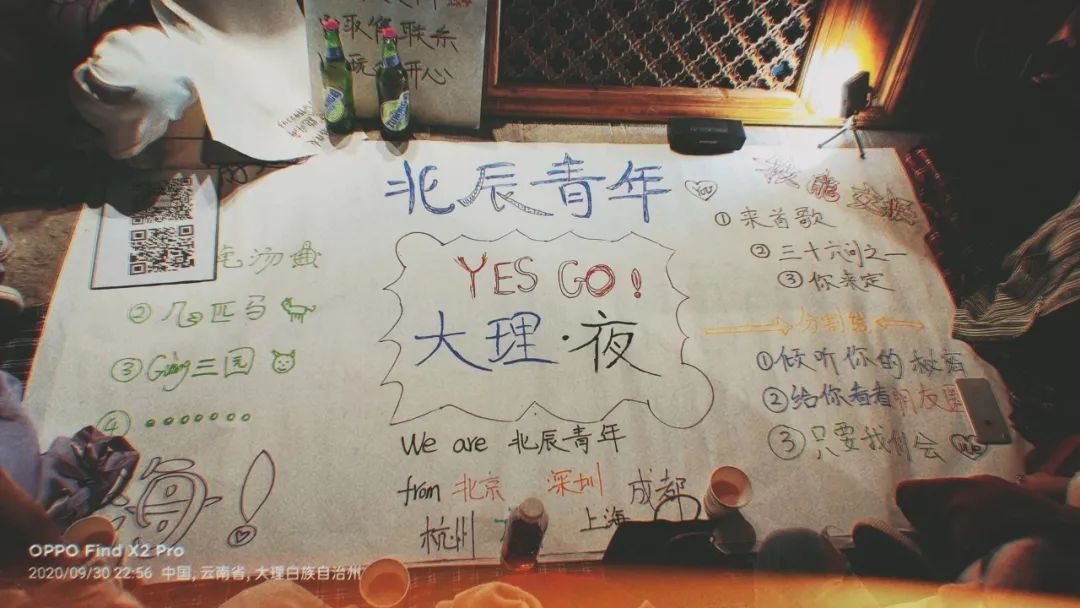 取得联系
开心
北辰青年
You
YES GO!
大理·夜
We are 北辰青年
from 北京 深圳 成都
杭州 上海
② 几匹马
③ Going三园
④ .......
嗨!
技能交换
① 来首歌
② 三十六问之一
③ 你来定
分割线
① 倾听你的秘密
② 给你看看朋友圈
③ 只要我们会
OPPO Find X2 Pro
2020/09/30 22:56 中国, 云南省, 大理白族自治州